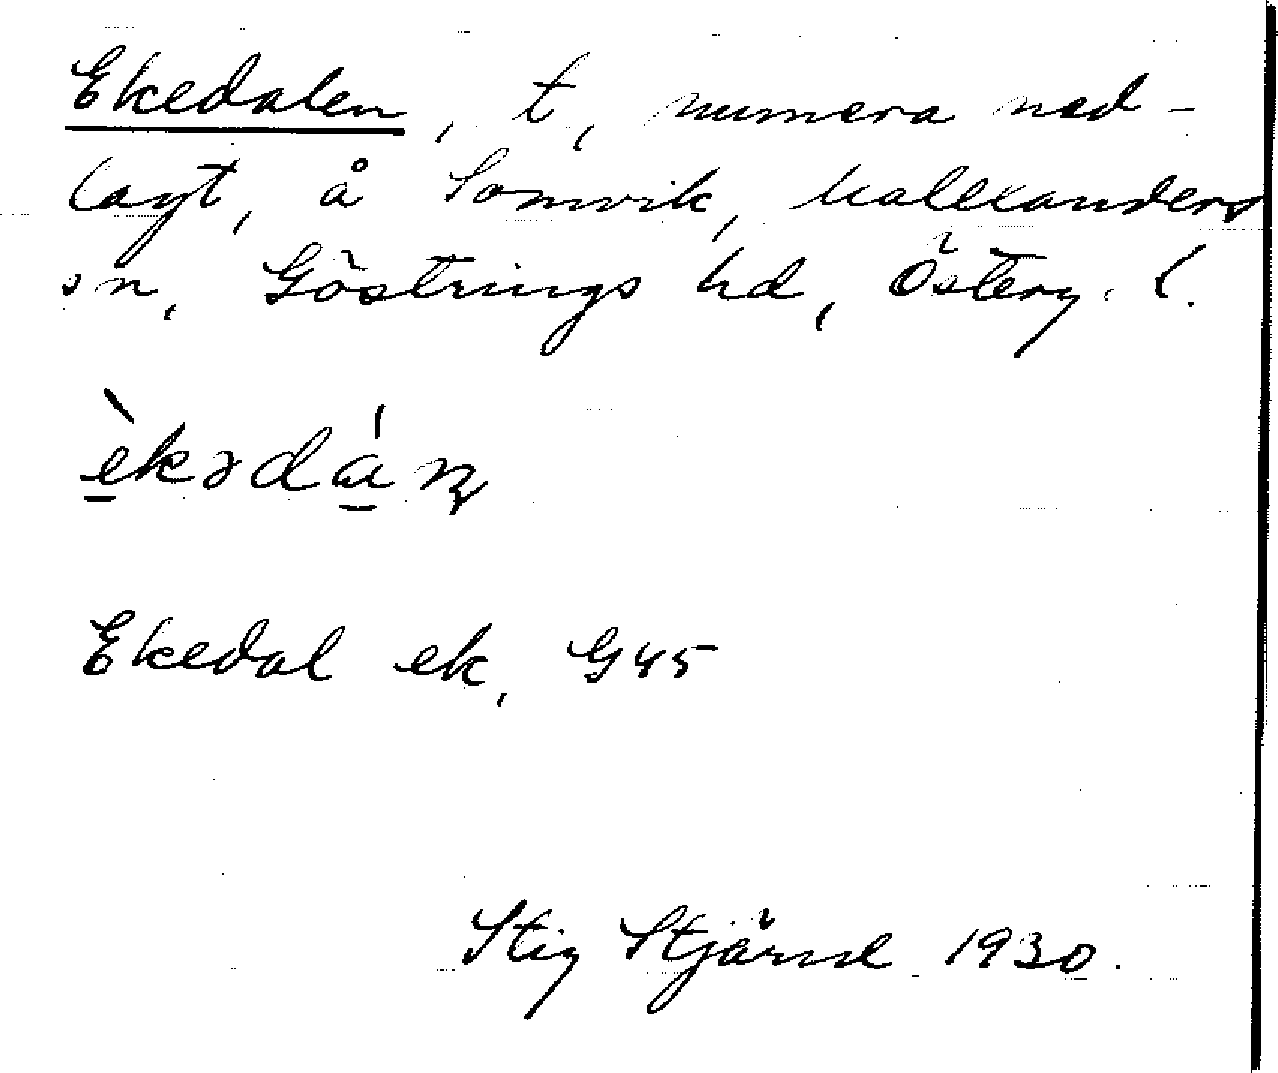 Ekedalen, t, numera ned-
lagt, å Somvik, Kallkanders
sn, Göstrings hd, Österg. l.
èkədán
Ekedal ek, G45
Stig Stjärne 1930.